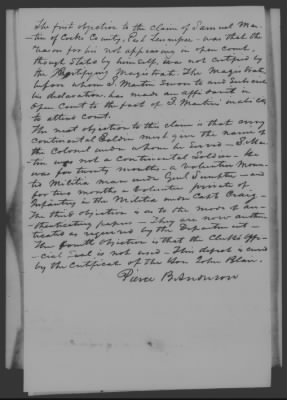 The first objection to the claim of Samuel Mar-
-tin of Cocke County, East Tennessee - was that the
reason for his not appearing in open court,
though stated by himself, was not certified by
the Certifying Magistrate. The Magistrate
before whom S. Martin swore to and subscribed
his declaration, has made an affidavit in
Open Court to the fact of S. Martin's inability
to attend court.
The next objection to the claim is that every
Continental Soldier must give the name of
the Colonel under whom he served - S. Mar-
tin was not a Continental Soldier - he
was for twenty months a volunteer Moun-
ted Militia man under Genl Sumpter - and
for two months a Volunteer private of
Infantry in the Militia under Capt Craig -
The third objection is as to the mode of au-
thenticating papers - They are now authen-
ticated as required by the Department -
The fourth objection is that the Clerk's offi-
-cial Seal is not used - This defect is cured
by the Certificate of the Hon John Blair.
Pierce B. Anderson